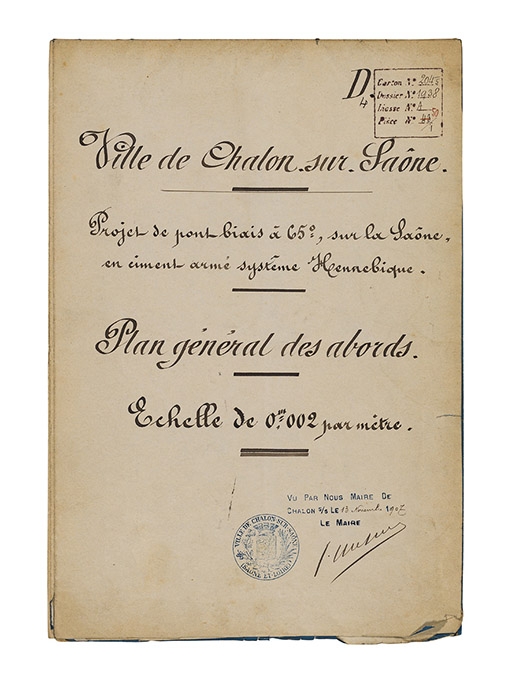 D.
4
Carton Nº 204⁵
Dossier Nº 1938
Liasse Nº 4
Pièce Nº
Ville de Chalon-sur-Saône.
Projet de pont biais à 65º, sur la Saône,
en ciment armé système Hennebique.
Plan général des abords.
Echelle de 0,ᵐ002 par mètre.
VU PAR NOUS MAIRE DE
CHALON S/S LE 13 Novembre 1907
LE MAIRE
VILLE DE CHALON-SUR-SAÔNE
(SAÔNE-ET-LOIRE)